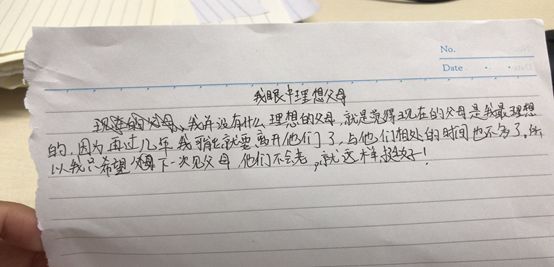 No.
Date
我眼中理想父母
现在的父母、我并没有什么理想的父母,就是觉得现在的父母是我最理想
的,因为再过几年我可能就要离开他们了,与他们相处的时间也不多了,所
以我只希望下一次见父母他们不会老,就这样挺好!